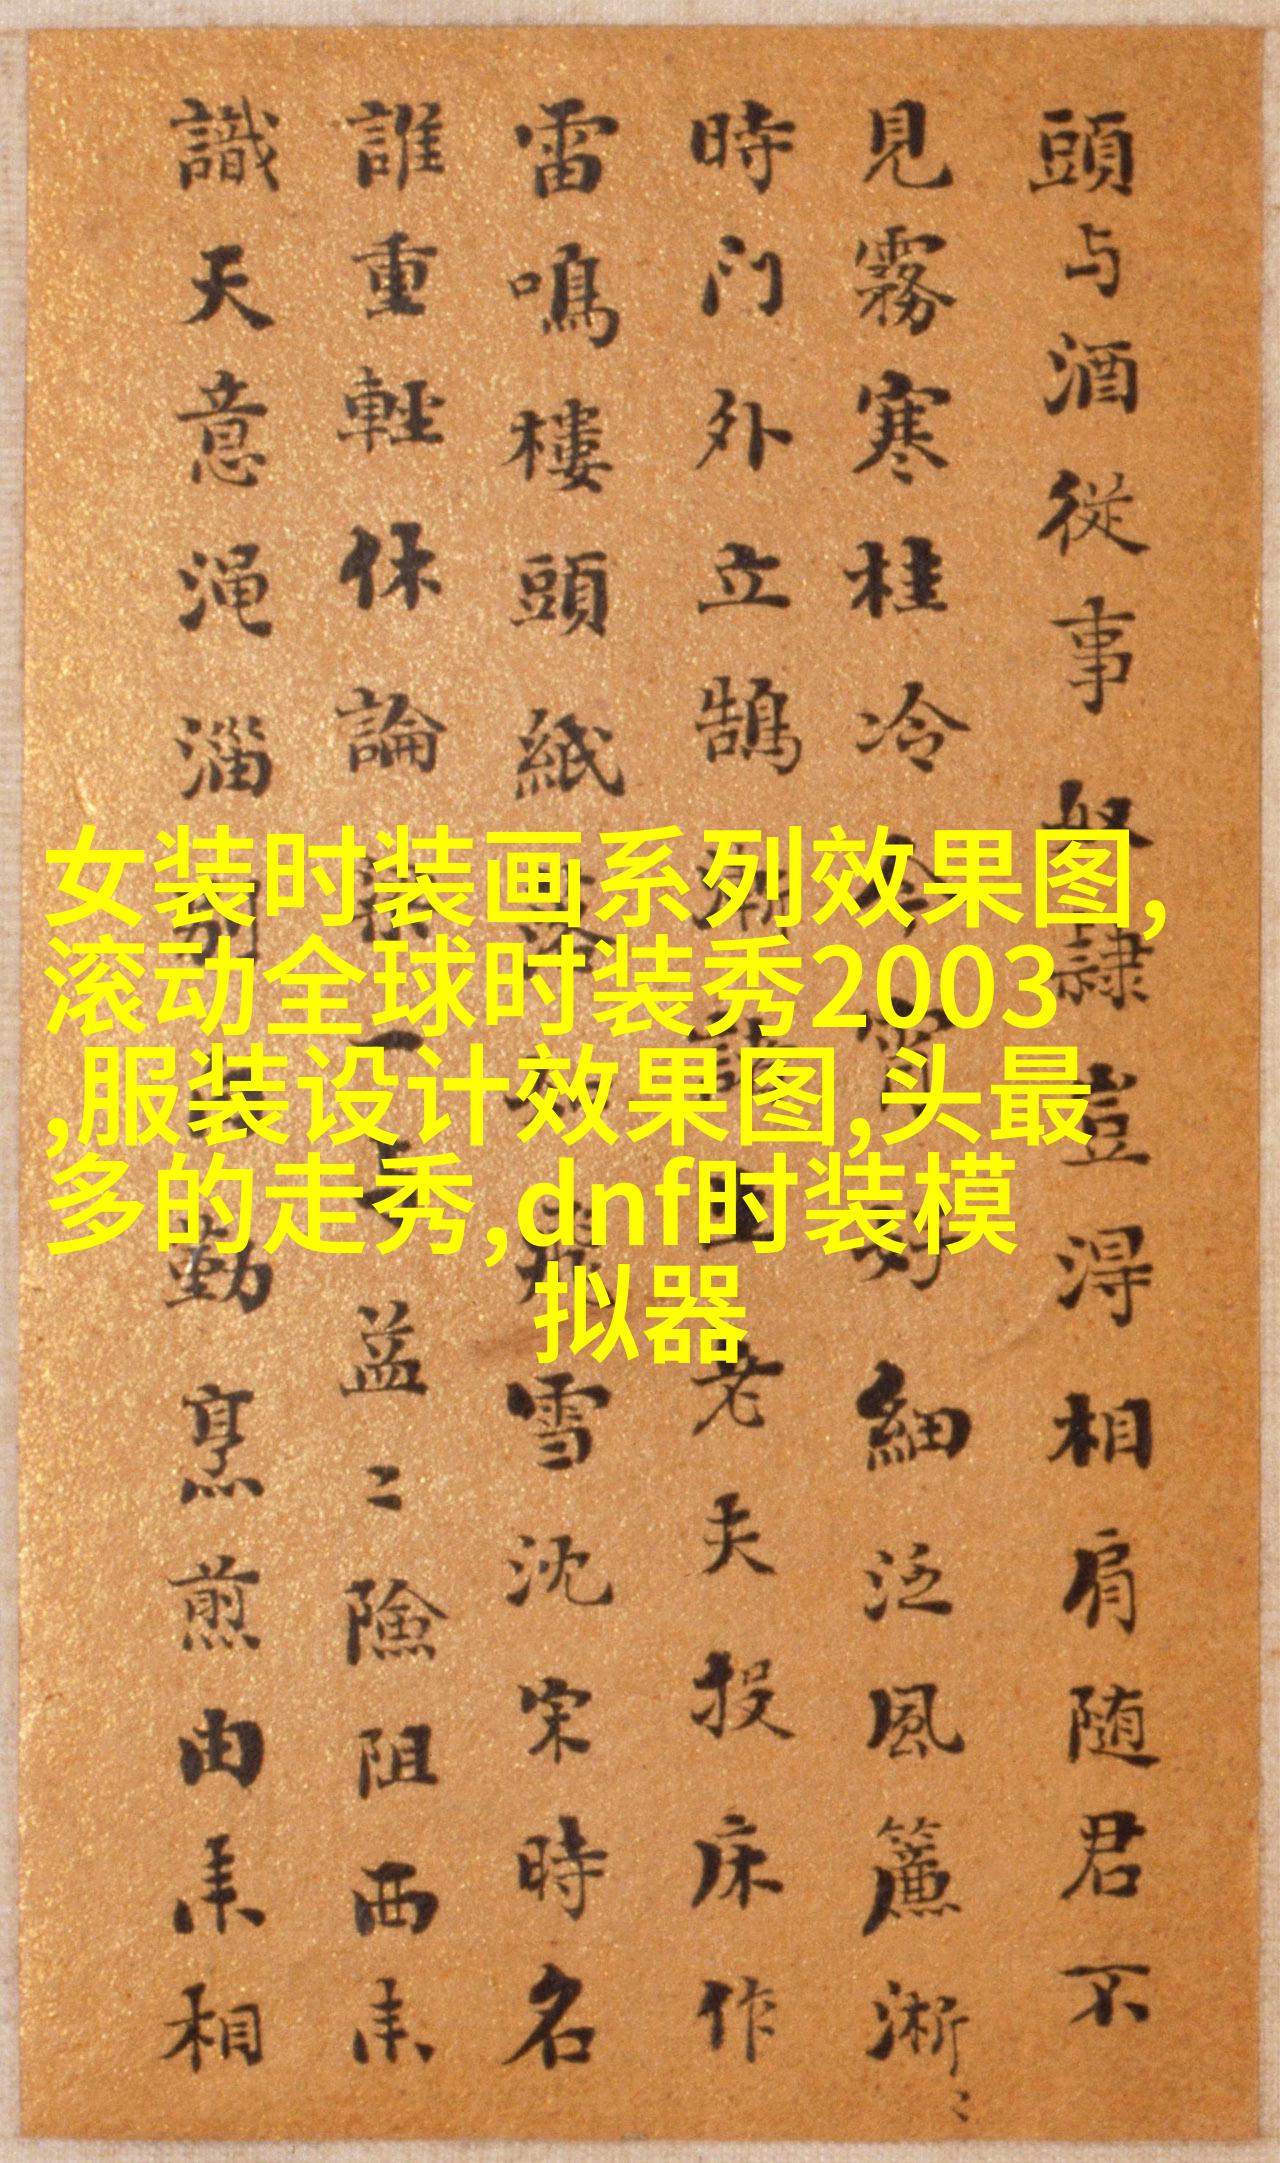 頭与酒從事奴隸豈淂相肩随君不
見霧寒桂冷好細泛風簾淅〻
時门外立鵠老夫投床作
雷鳴樓頭紙飛雪沈宋時名
誰重輕休論益〻險阻西来
識天意渑淄别勤烹煎由来相
女装时装画系列效果图,
滚动全球时装秀2003
,服装设计效果图,头最
多的走秀,dnf时装模
拟器